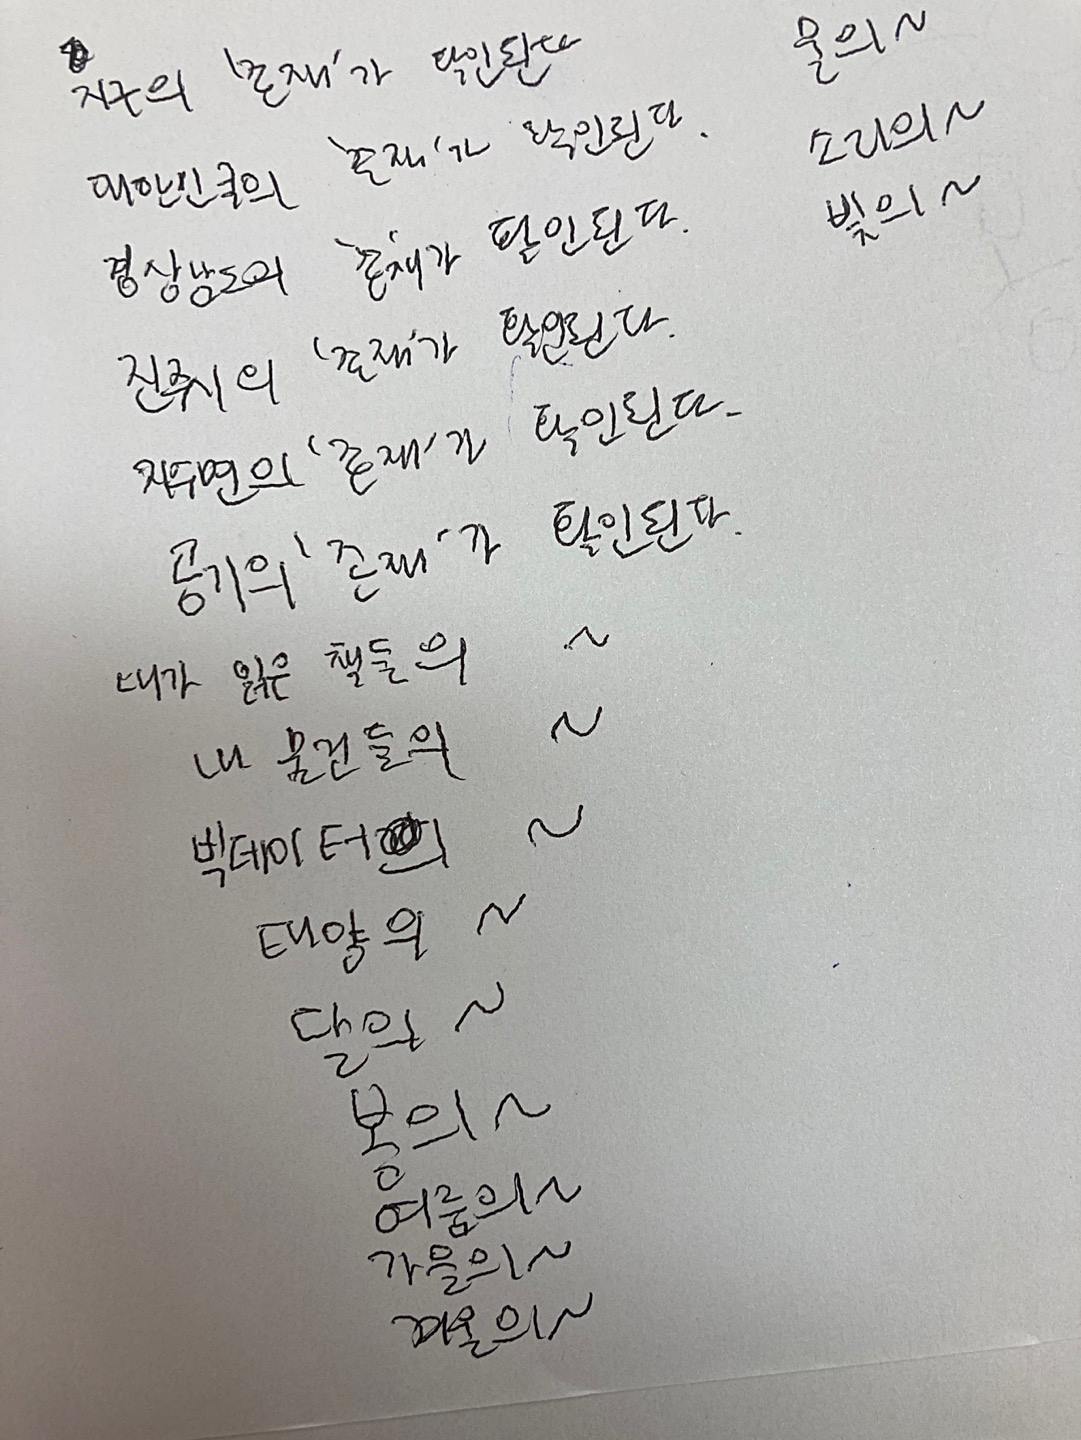 지구의 '존재'가 확인된다
대한민국의 '존재'가 확인된다.
경상남도의 '존재'가 확인된다.
진주시의 '존재'가 확인된다.
지수면의 '존재'가 확인된다.
공기의 '존재'가 확인된다.
내가 읽은 책들의 ~
내 물건들의 ~
빅데이터의 ~
태양의 ~
달의 ~
봄의 ~
여름의 ~
가을의 ~
겨울의 ~
물의 ~
소리의 ~
빛의 ~